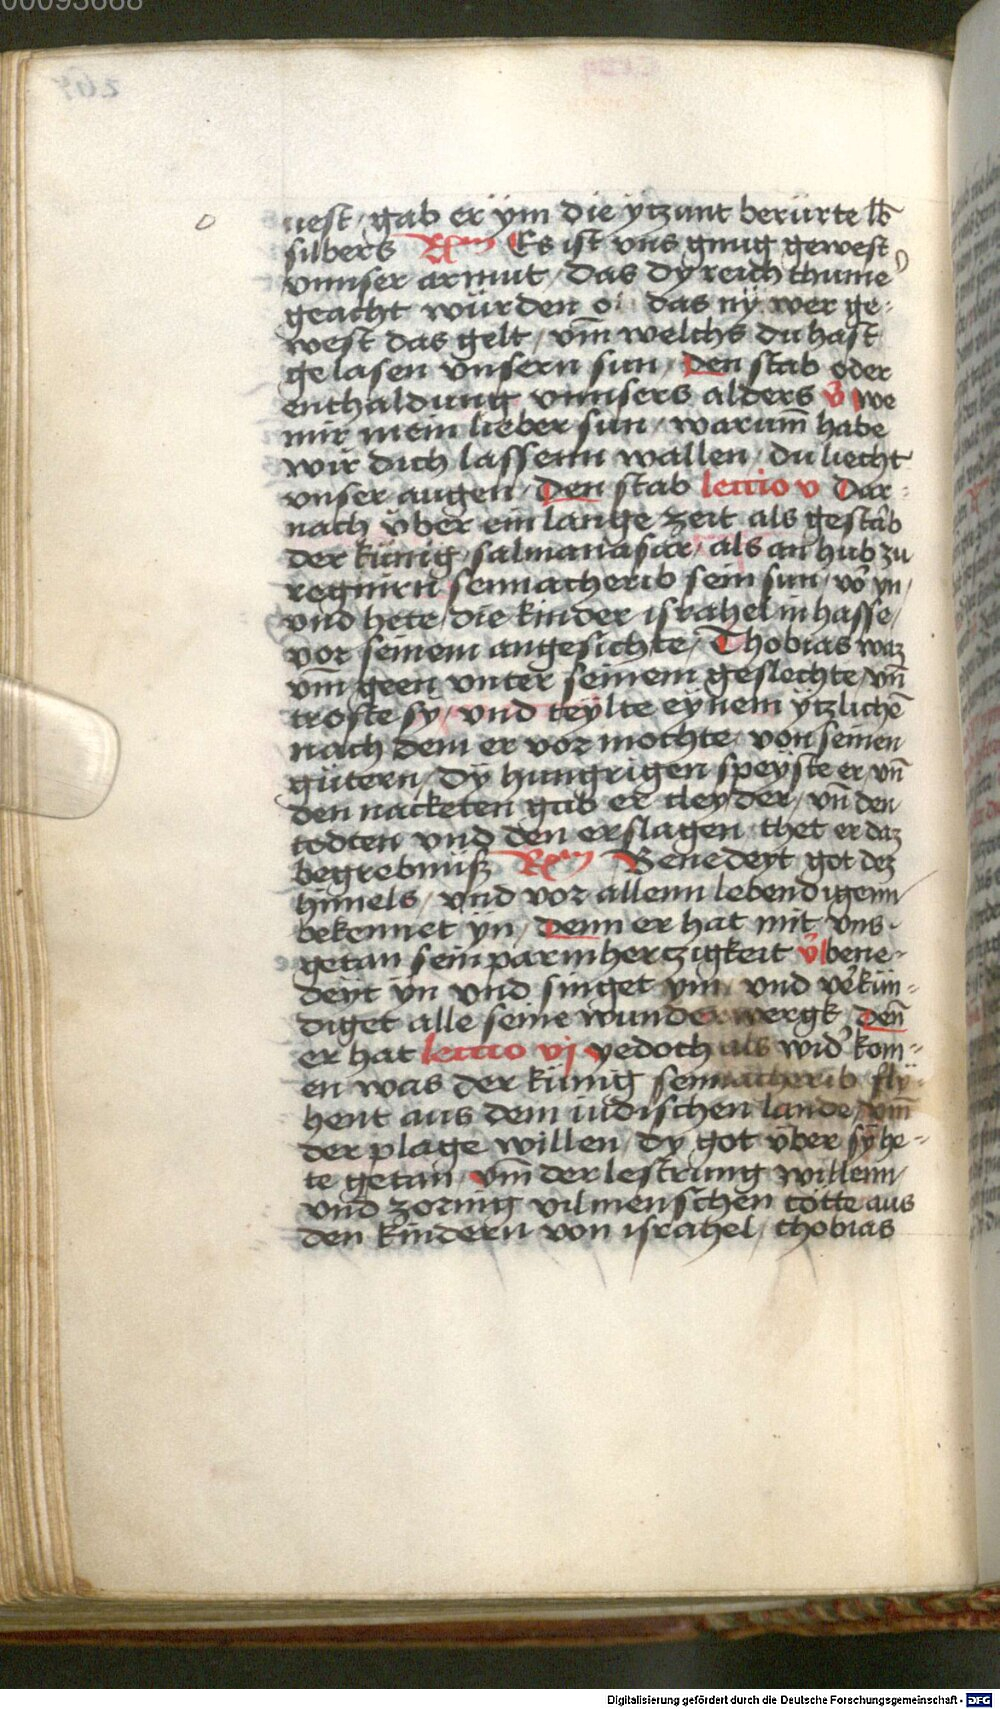 00093668
uest / gab er ÿm die ÿtzunt berürte lb
silbers Rm Es ist vns gnug gewest
vnnser armut / das dy reich thume
geacht würden o das nÿ wer ge-
west das gelt / vm̄ welchs du hast
gelasen vnsern sun / Den stab oder
enthaldung vnnsers alders v we
mir mein lieber sun / warum̄ habe
wir dich lassenn wallen / du liecht
vnser augen / Den stab lectio v Dar-
nach über ein lange zeit als gestab
der künig / salmanasar / als an hub zu
regnirn sennacherib sein sun / vor yn /
vnd hete / die kinder israhel in hasse /
vor seinem angesichte / Thobias waz
vm̄ geen vnter seinem geslechte / vn̄
troste sy / vnd teÿlte eÿnem ÿtzlichē
nach dem er vor mochte / von seinen
gütern / dy hungrigen speyste er / vn̄
den nacketen gab er cleyder / vn̄ den
todten vnd den erslagen thet er daz
begrebnüß Rm Benedeyt got dez
himels / vnd vor allenn lebendigenn
bekennet ÿn / Denn er hat mit vns
getan sein parmhertzigkeit v bene-
deyt ÿn vnd singet ym vnd v̓kün-
diget alle seine wunderwergk Den̄
er hat lectio vj yedoch als wid̓ kom-
en was der künig sennacherib flÿ-
hent aus dem iudischen lande / vm̄
der plage willen / dy got über sÿ he-
te getan / vm̄ der lestrung willenn /
vnd zornig vil menschen tötte aus
den kindern von israhel / thobias
Digitalisierung gefördert durch die Deutsche Forschungsgemeinschaft - DFG